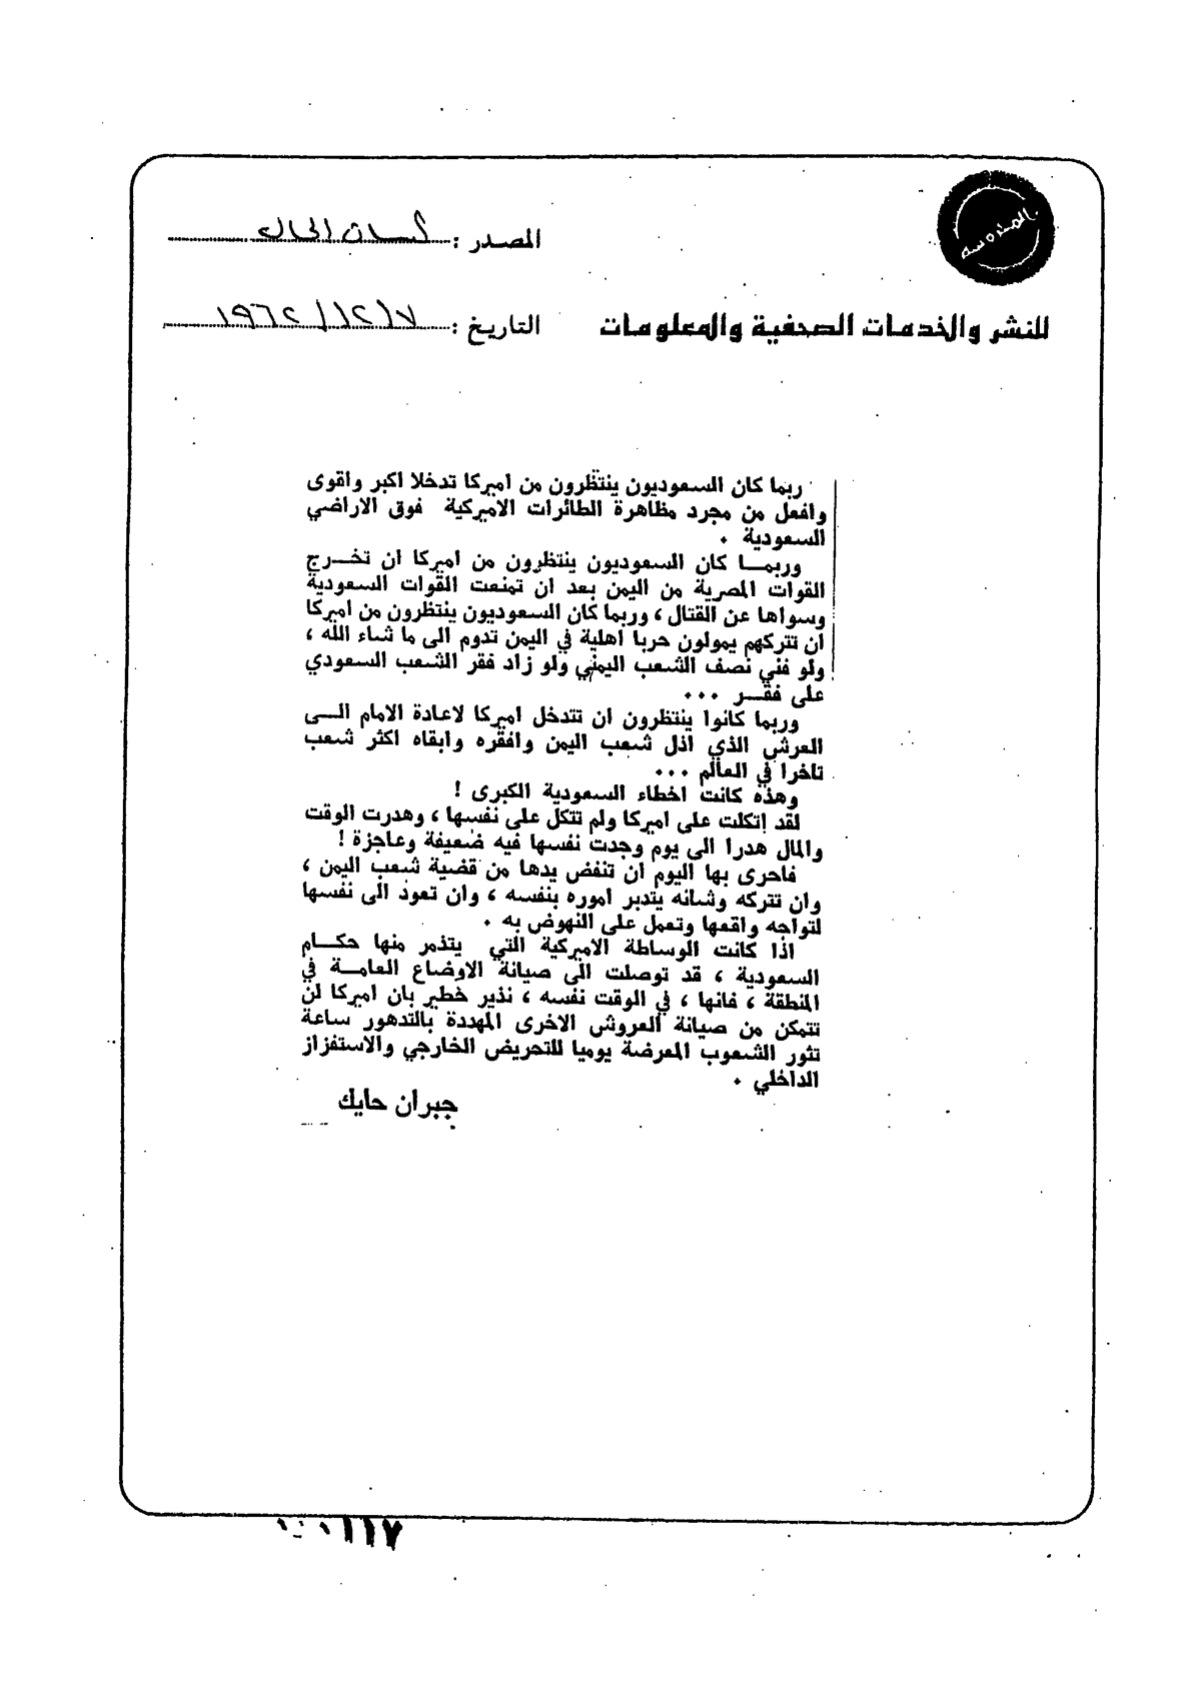 المصدر : لسان الحال
للنشر والخدمات الصحفية والمعلومات
التاريخ : ٧ / ١٢ / ١٩٦٢
ربما كان السعوديون ينتظرون من اميركا تدخلا اكبر واقوى
وافعل من مجرد مظاهرة الطائرات الاميركية فوق الاراضي
السعودية .
وربمـــا كان السعوديون ينتظرون من اميركا ان تخــرج
القوات المصرية من اليمن بعد ان تمنعت القوات السعودية
وسواها عن القتال ، وربما كان السعوديون ينتظرون من اميركا
ان تتركهم يمولون حربا اهلية في اليمن تدوم الى ما شاء الله ،
ولو فني نصف الشعب اليمني ولو زاد فقر الشعب السعودي
على فقـــر ...
وربما كانوا ينتظرون ان تتدخل اميركا لاعادة الامام الـــى
العرش الذي اذل شعب اليمن وافقره وابقاه اكثر شعب
تاخرا في العالم ...
وهذه كانت اخطاء السعودية الكبرى !
لقد إتكلت على اميركا ولم تتكل على نفسها ، وهدرت الوقت
والمال هدرا الى يوم وجدت نفسها فيه ضعيفة وعاجزة !
فاحرى بها اليوم ان تنفض يدها من قضية شعب اليمن ،
وان تتركه وشانه يتدبر اموره بنفسه ، وان تعود الى نفسها
لتواجه واقعها وتعمل على النهوض به .
اذا كانت الوساطة الاميركية التي يتذمر منها حكــام
السعودية ، قد توصلت الى صيانة الاوضاع العامــة في
المنطقة ، فانها ، في الوقت نفسه ، نذير خطير بان اميركا لن
تتمكن من صيانة العروش الاخرى المهددة بالتدهور ساعة
تثور الشعوب المعرضة يوميا للتحريض الخارجي والاستفزاز
الداخلي .
جبران حايك